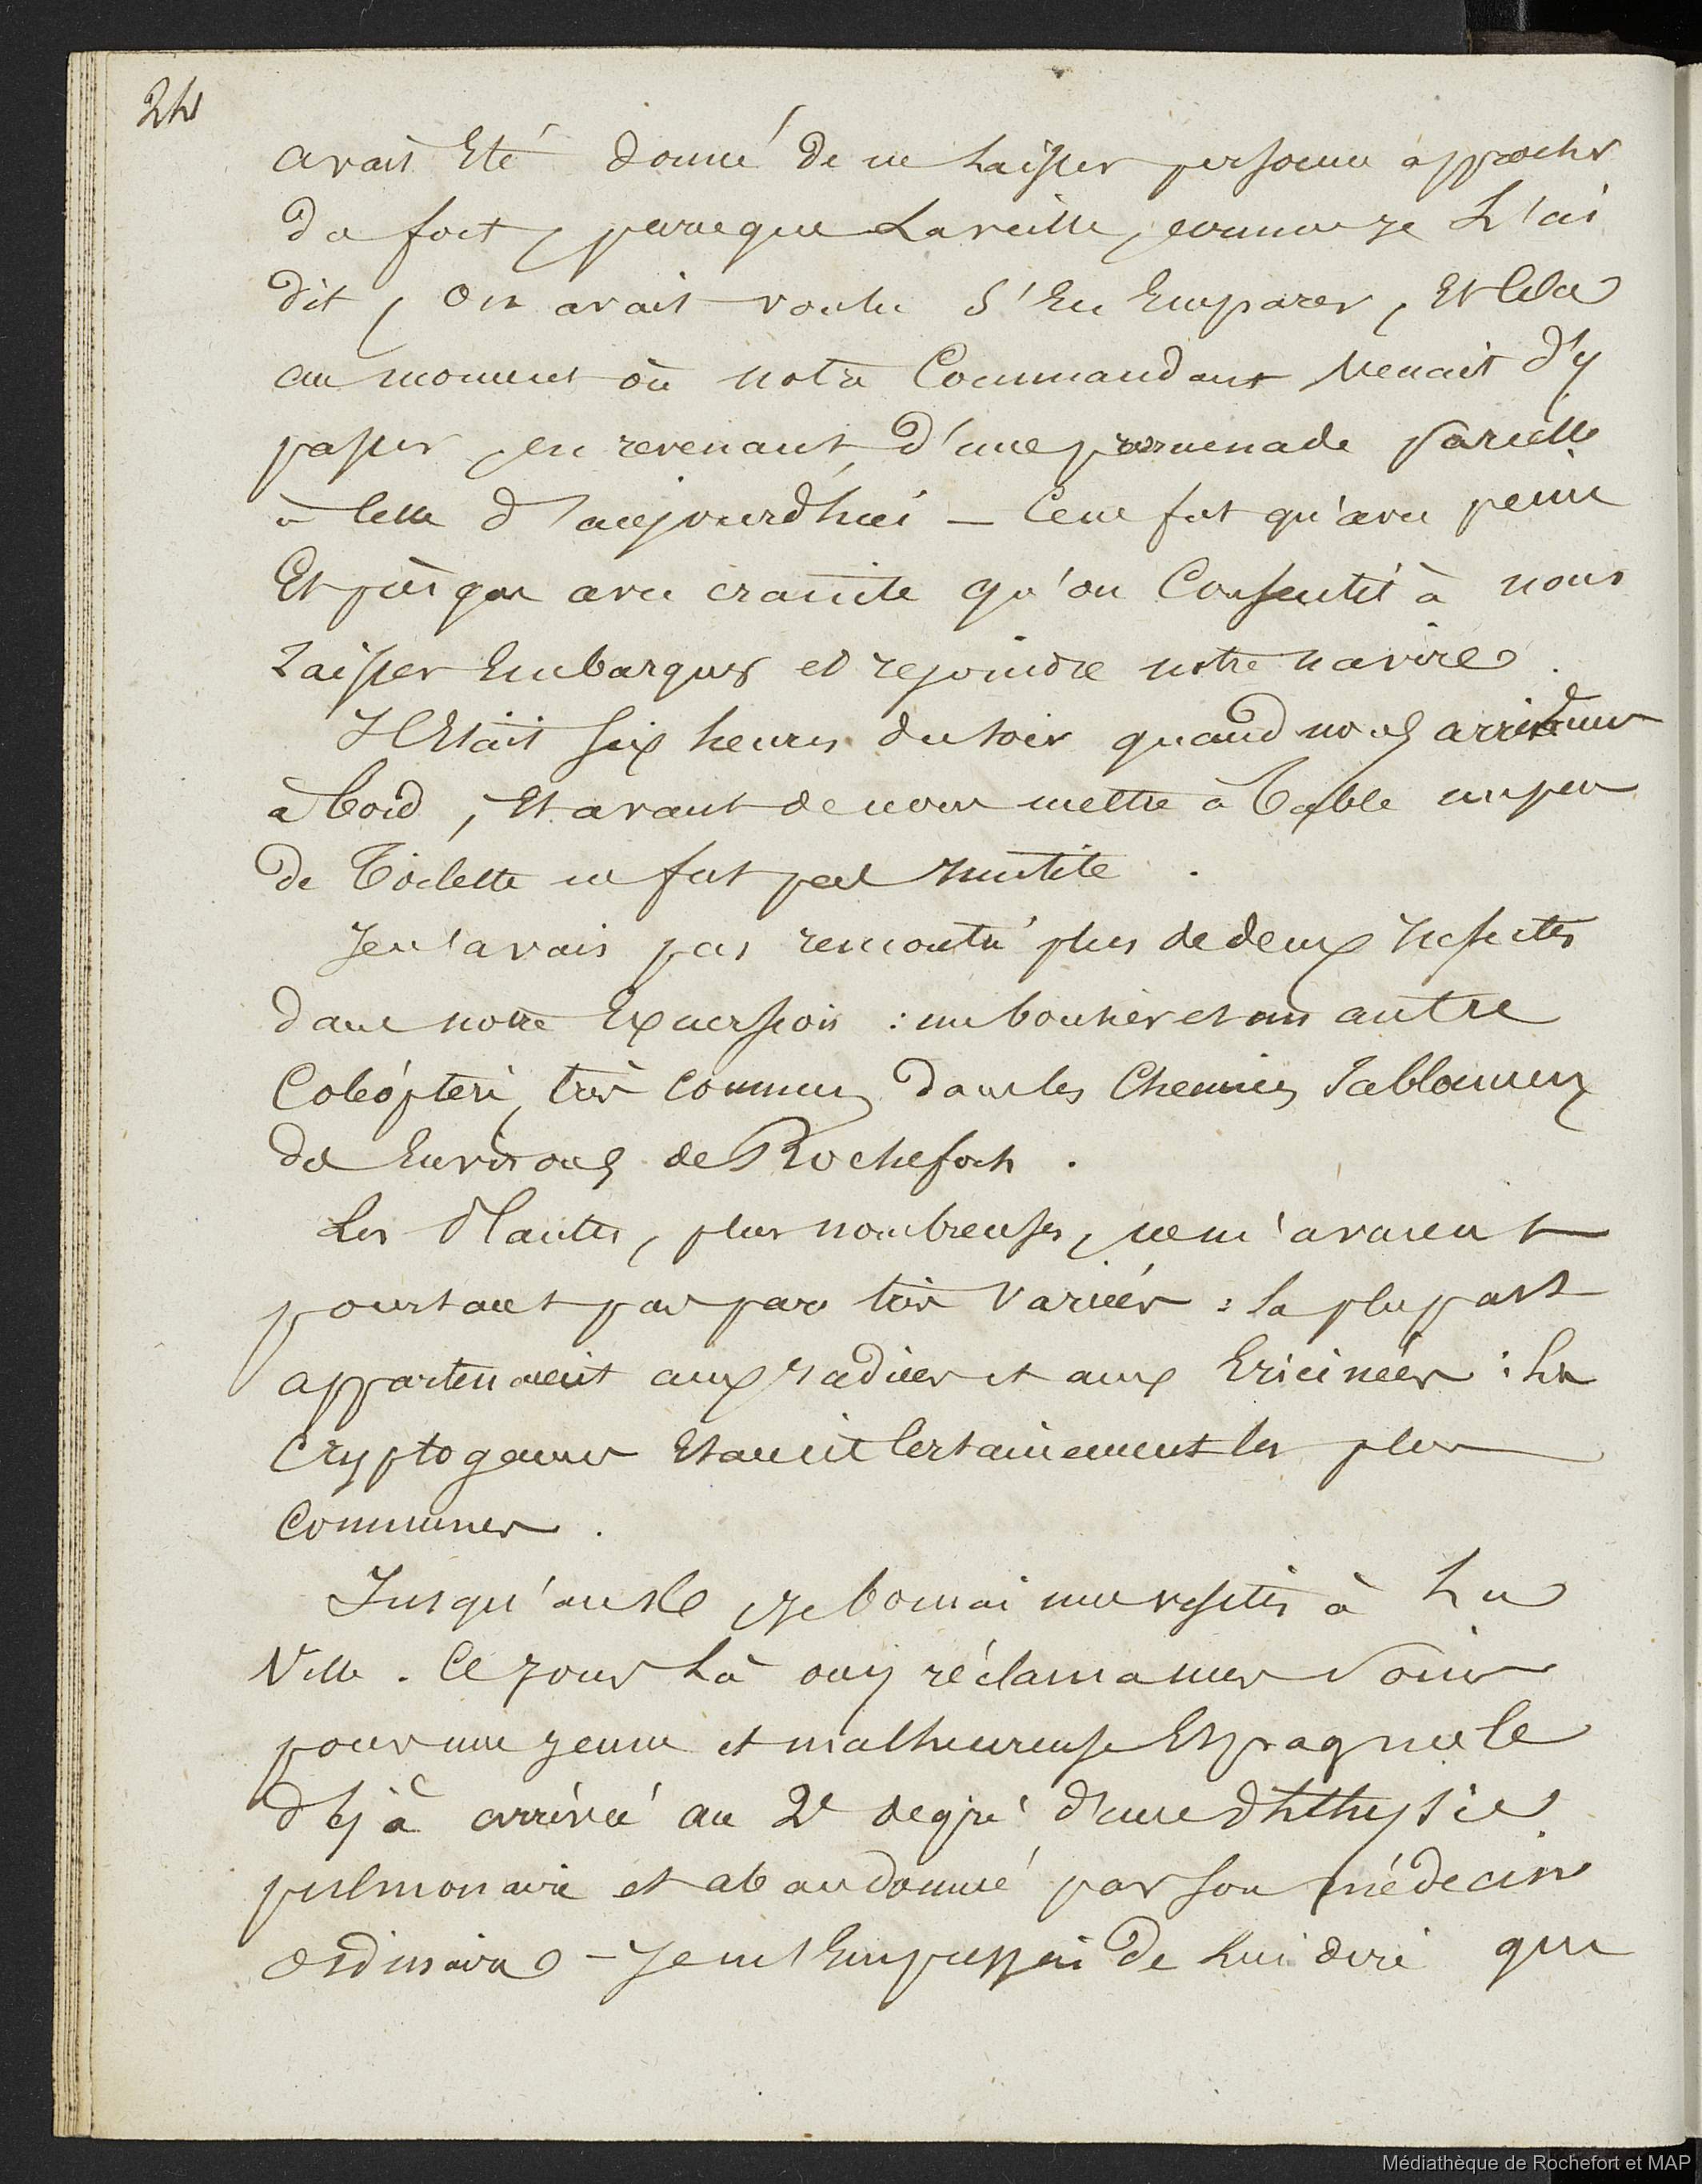 24
avait Eté donné de ne Laisser personne approcher
du fort, parceque La veille, comme je L'ai
dit, On avait voulu S'En Emparer, Et Cela
au moment où notre Commandant Venait d'y
passer, en revenant d'une promenade Pareille
à Celle d'aujourd'hui — Ce ne fut qu'avec peine
Et presque avec crainte qu'on Consentit à nous
Laisser Embarquer et rejoindre notre navire.
Il Etait Six heures du soir quand nous arrivâmes
à bord, Et avant de nous mettre à Table un peu
de Toilette ne fut pas Inutile.
Je n'avais pas rencontré plus de deux Insectes
dans notre Excursion : un bousier et un autre
Coléoptère, très Commun dans les Chemins Sablonneux
des Environs de Rochefort.
Les Plantes, plus nombreuses, ne m'avaient
pourtant pas paru très Variées : la plupart
appartenaient aux et aux Ericinées : Les
Cryptogames Etaient Certainement les plus
Communes.
Jusqu'au 16 je bornai mes visites à La
Ville. Ce jour Là on y réclama mes Soins
pour une jeune et malheureuse Espagnole
déjà arrivée au 2e degré d'une Phthysie
pulmonaire et abandonnée par son médecin
ordinaire — Je m'Empressai de Lui dire que
Médiathèque de Rochefort et MAP